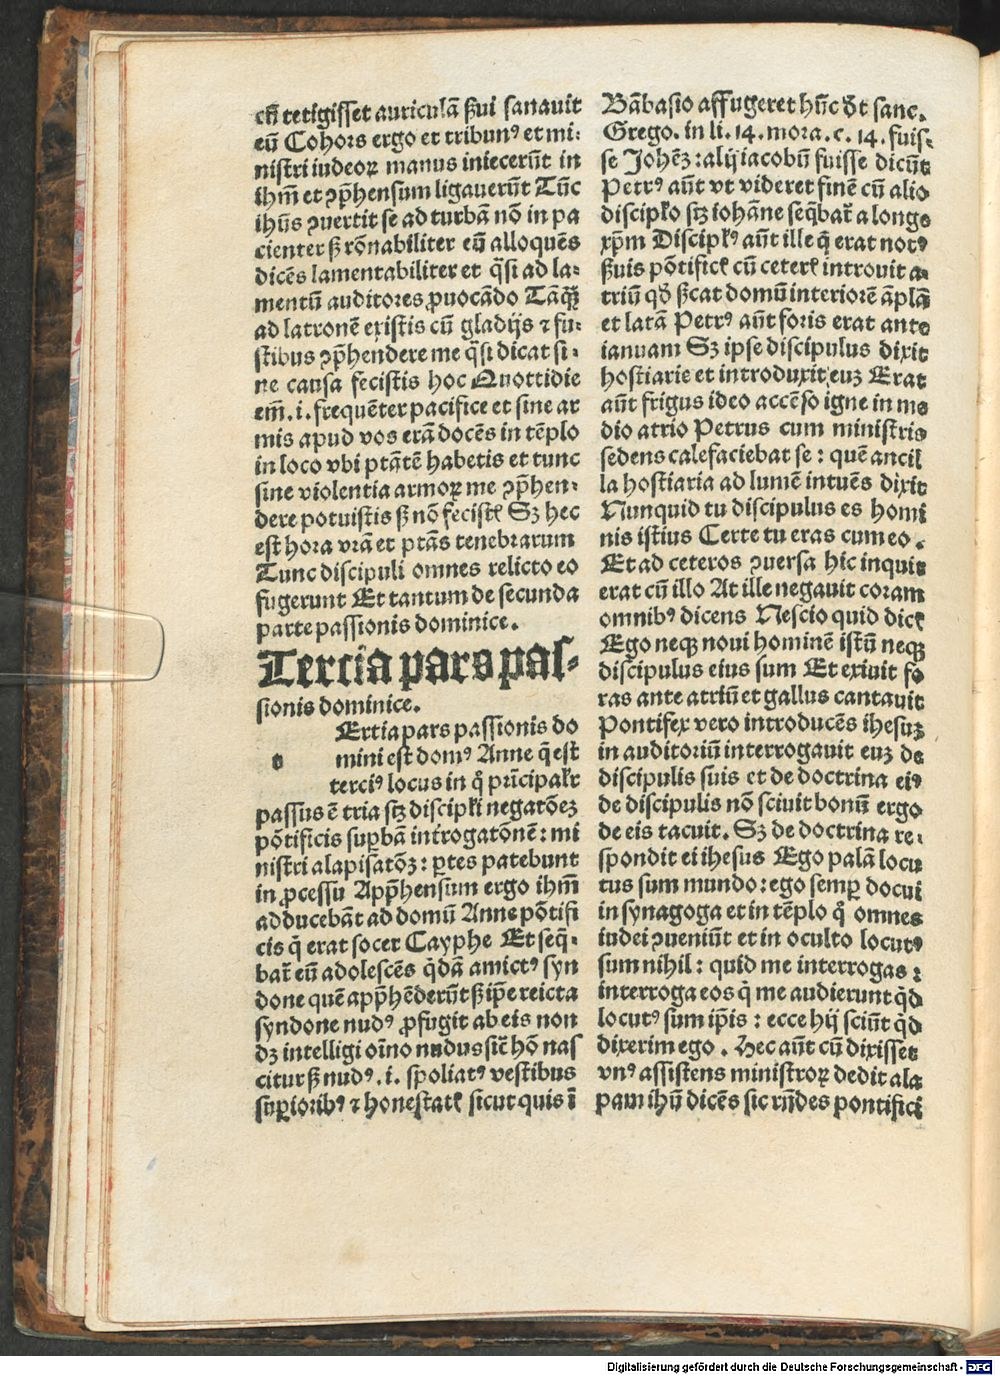 cū tetigisset auriculā ẞui sanauit
eū Cohors ergo et tribunꝰ et mi⸗
nistri iudeoꝝ manus iniecerūt in
ihm̄ et ꝯp̄hensum ligauerūt Tūc
ihūs ꝯuertit se ad turbā nō in pa
cienter ẞ rōnabiliter eū alloquēs
dicēs lamentabiliter et q̄si ad la⸗
mentū auditores ꝓuocādo Tāq̄ꝫ
ad latronē existis cū gladijs ⁊ fu⸗
stibus ꝯp̄hendere me q̄si dicat si⸗
ne causa fecistis hoc Quottidie
em̄.i.frequēter pacifice et sine ar
mis apud vos erā docēs in tēplo
in loco vbi ptātē habetis et tunc
sine violentia armoꝝ me ꝯp̄hen⸗
dere potuistis ẞ nō fecistꝭ Sꝫ hec
est hora vrā et ptās tenebrarum
Tunc discipuli omnes relicto eo
fugerunt Et tantum de secunda
parte passionis dominice.
Tercia pars pas⸗
sionis dominice.
Ertia pars passionis do
t mini est domꝰ Anne q̄ est
terciꝰ locus in q̊ prīcipalr̄
passus ē tria stꝫ discipłi negatōeꝫ
pōtificis suꝑbā int̄rogatōnē: mi
nistri alapisatōꝫ: ꝑtes patebunt
in ꝓcessu App̄hensum ergo ihm̄
adducebāt ad domū Anne pōtifi
cis q̄ erat socer Cayphe Et seq̄⸗
bat̄ eū adolescēs q̄dā amictꝰ syn
done quē app̄hēderūt ẞ ip̄e reicta
syndone nudꝰ ꝓfugit ab eis non
dꝫ intelligi oīno nudus sic̄ hō nas
citur ẞ nudꝰ.i. spoliatꝰ vestibus
suꝑioribꝰ ⁊ honestatꝭ sicut quis ī
Bābasio affugeret hūc dt̄ sanc.
Grego. in li.14.mora.c.14.fuis⸗
se Johēꝫ: alij iacobū fuisse dicūt
Petrꝰ aūt vt videret finē cū alio
discipło stꝫ iohāne seq̄bat̄ a longe
xp̄m Discipłꝰ aūt ille q̄ erat notꝰ
ẞuis pōtificꝭ cū ceterꝭ introuit a⸗
triū qd̄ ẞcat domū interiorē āplā
et latā Petrꝰ aūt foris erat ante
ianuam Sꝫ ipse discipulus dixit
hostiarie et introduxit euꝫ Erat
aūt frigus ideo accēso igne in me
dio atrio Petrus cum ministris
sedens calefaciebat se: quē ancil
la hostiaria ad lumē intuēs dixit
Nunquid tu discipulus es homi
nis istius Certe tu eras cum eo.
Et ad ceteros ꝯuersa hic inquit
erat cū illo At ille negauit coram
omnibꝰ dicens Nescio quid dicꝭ
Ego neqꝫ noui hominē istū neqꝫ
discipulus eius sum Et exiuit fo
ras ante atriū et gallus cantauit
Pontifex vero introducēs ihesuꝫ
in auditoriū interrogauit euꝫ de
discipulis suis et de doctrina eiꝰ
de discipulis nō sciuit bonū ergo
de eis tacuit. Sꝫ de doctrina re⸗
spondit ei ihesus Ego palā locu
tus sum mundo: ego semꝑ docui
in synagoga et in tēplo q̊ omnes
iudei ꝯueniūt et in oculto locutꝰ
sum nihil: quid me interrogas:
interroga eos q̄ me audierunt q̄d
locutꝰ sum ip̄is: ecce hij sciūt q̄d
dixerim ego. Hec aūt cū dixisset
vnꝰ assistens ministroꝝ dedit ala
pam ihū dicēs sic rn̄des pontifici
Digitalisierung gefördert durch die Deutsche Forschungsgemeinschaft - DFG